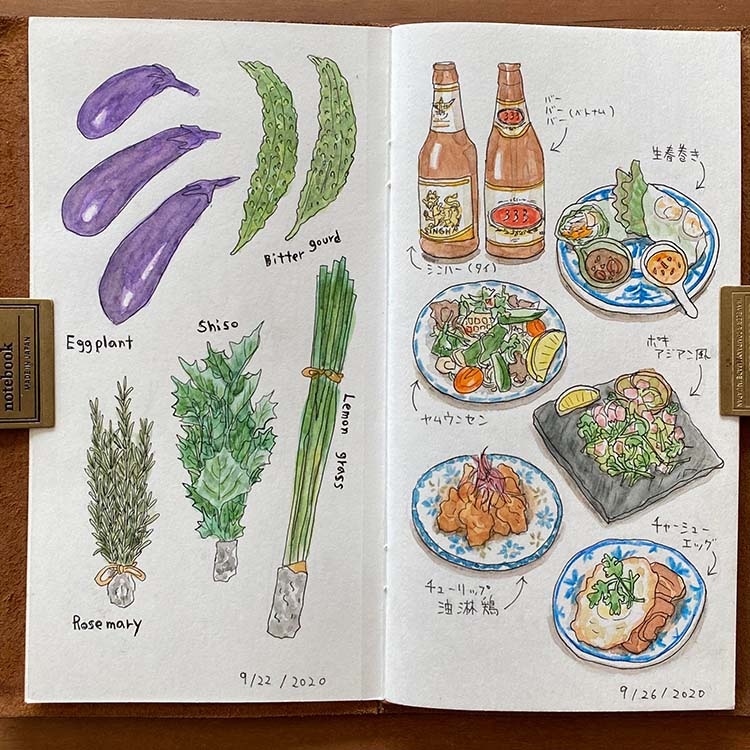 Eggplant
Bitter gourd
Shiso
Lemon grass
Rosemary
9/22/2020
notebook
MADE IN JAPAN
SINGHA
333
333
バー
バー
バー(ベトナム)
生春巻き
シンハー(タイ)
ヤムウンセン
ポキ
アジアン風
チューリップ
油淋鶏
チャーシュー
エッグ
9/26/2020